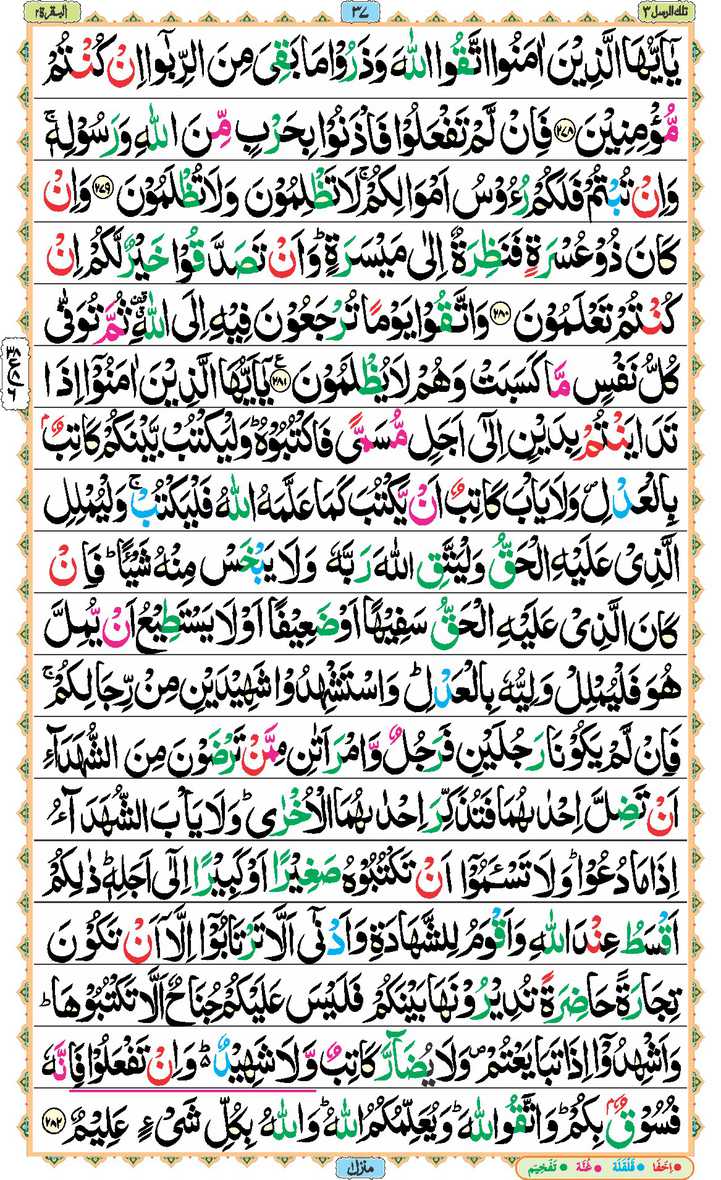 تلك الرسل ٣
٣٧
البقرة ٢
يٰۤاَيُّهَا الَّذِيْنَ اٰمَنُوا اتَّقُوا اللّٰهَ وَذَرُوْا مَا بَقِىَ مِنَ الرِّبٰٓوا اِنْ كُنْتُمْ
مُّؤْمِنِيْنَ ﴿٢٧٨﴾ فَاِنْ لَّمْ تَفْعَلُوْا فَاْذَنُوْا بِحَرْبٍ مِّنَ اللّٰهِ وَرَسُوْلِهٖ ۚ
وَاِنْ تُبْتُمْ فَلَكُمْ رُءُوْسُ اَمْوَالِكُمْ ۚ لَا تَظْلِمُوْنَ وَلَا تُظْلَمُوْنَ ﴿٢٧٩﴾ وَاِنْ
كَانَ ذُوْ عُسْرَةٍ فَنَظِرَةٌ اِلٰى مَيْسَرَةٍ ؕ وَاَنْ تَصَدَّقُوْا خَيْرٌ لَّكُمْ اِنْ
كُنْتُمْ تَعْلَمُوْنَ ﴿٢٨٠﴾ وَاتَّقُوْا يَوْمًا تُرْجَعُوْنَ فِيْهِ اِلَى اللّٰهِ ۗ ثُمَّ تُوَفّٰى
كُلُّ نَفْسٍ مَّا كَسَبَتْ وَهُمْ لَا يُظْلَمُوْنَ ﴿٢٨١﴾ ع يٰۤاَيُّهَا الَّذِيْنَ اٰمَنُوْۤا اِذَا
تَدَايَنْتُمْ بِدَيْنٍ اِلٰٓى اَجَلٍ مُّسَمًّى فَاكْتُبُوْهُ ؕ وَلْيَكْتُبْ بَّيْنَكُمْ كَاتِبٌۢ
بِالْعَدْلِ ۪ وَلَا يَاْبَ كَاتِبٌ اَنْ يَّكْتُبَ كَمَا عَلَّمَهُ اللّٰهُ فَلْيَكْتُبْ ۚ وَلْيُمْلِلِ
الَّذِىْ عَلَيْهِ الْحَقُّ وَلْيَتَّقِ اللّٰهَ رَبَّهٗ وَلَا يَبْخَسْ مِنْهُ شَيْـًٔا ؕ فَاِنْ
كَانَ الَّذِىْ عَلَيْهِ الْحَقُّ سَفِيْهًا اَوْ ضَعِيْفًا اَوْ لَا يَسْتَطِيْعُ اَنْ يُّمِلَّ
هُوَ فَلْيُمْلِلْ وَلِيُّهٗ بِالْعَدْلِ ؕ وَاسْتَشْهِدُوْا شَهِيْدَيْنِ مِنْ رِّجَالِكُمْ ۚ
فَاِنْ لَّمْ يَكُوْنَا رَجُلَيْنِ فَرَجُلٌ وَّامْرَاَتٰنِ مِمَّنْ تَرْضَوْنَ مِنَ الشُّهَدَآءِ
اَنْ تَضِلَّ اِحْدٰىهُمَا فَتُذَكِّرَ اِحْدٰىهُمَا الْاُخْرٰى ؕ وَلَا يَاْبَ الشُّهَدَآءُ
اِذَا مَا دُعُوْا ؕ وَلَا تَسْـَٔمُوْۤا اَنْ تَكْتُبُوْهُ صَغِيْرًا اَوْ كَبِيْرًا اِلٰٓى اَجَلِهٖ ؕ ذٰلِكُمْ
اَقْسَطُ عِنْدَ اللّٰهِ وَاَقْوَمُ لِلشَّهَادَةِ وَاَدْنٰٓى اَلَّا تَرْتَابُوْۤا اِلَّاۤ اَنْ تَكُوْنَ
تِجَارَةً حَاضِرَةً تُدِيْرُوْنَهَا بَيْنَكُمْ فَلَيْسَ عَلَيْكُمْ جُنَاحٌ اَلَّا تَكْتُبُوْهَا ؕ
وَاَشْهِدُوْۤا اِذَا تَبَايَعْتُمْ ۪ وَلَا يُضَآرَّ كَاتِبٌ وَّلَا شَهِيْدٌ ؕ وَاِنْ تَفْعَلُوْا فَاِنَّهٗ
فُسُوْقٌۢ بِكُمْ ؕ وَاتَّقُوا اللّٰهَ ؕ وَيُعَلِّمُكُمُ اللّٰهُ ؕ وَاللّٰهُ بِكُلِّ شَىْءٍ عَلِيْمٌ ﴿٢٨٢﴾
منزل
اخفا قلقلة غنة تفخيم